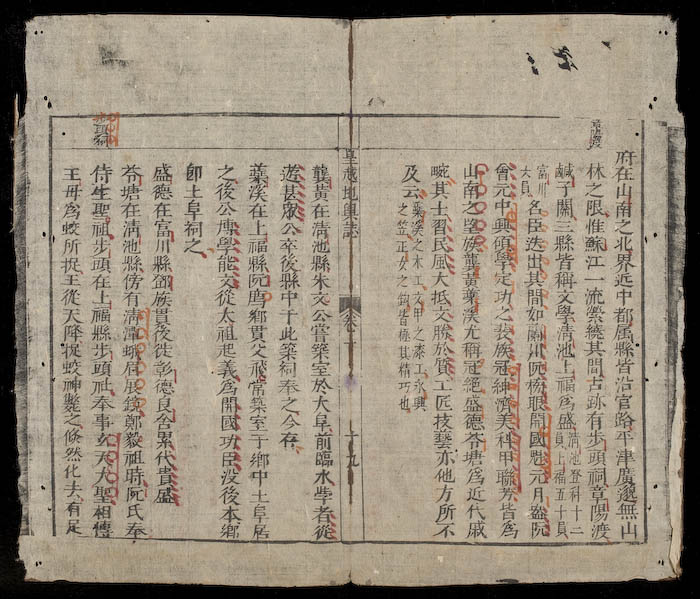 章陽渡
府在山南之北界近中都屬縣皆沿官路平津廣邃無山
林之限惟蘇江一流縈繞其間古跡有步頭祠章陽渡
鹹子關三縣皆稱文學清池上福爲盛
清池登科十二
員上福五十員
富川
大員
名臣迭出其間如蘭川阮榜眼開國魁元月盎阮
會元中興碩學定功之裴族冠紳濟美科甲聯芳皆爲
山南之望族龔黃蘂溪尤稱冠絕盛德苓塘爲近代戚
畹其土習民風大抵文勝於質工匠技藝亦他方所不
及云
蘂溪之木工文甲之漆工永興
之笠正女之皆極其精巧也
皇越地輿誌
卷下
十九
龔黃在清池縣朱文公嘗築室於大阜前臨水學者從
遊甚衆公卒後縣中于此築祠奉之今存
蘂溪在上福縣阮廌鄉貫父飛常築室于鄉中土阜居
之後公博學能文從太祖起義爲開國功臣没後本鄉
卽土阜祠之
盛德在富川縣鄧族貫後徙彰德良舍累代貴盛
步頭祠
苓塘在清池縣傍有清潭蛾眉展鏡鄭毅祖時阮氏奉
侍生聖祖步頭在上福縣步頭祇奉事玄天大聖相傳
王毋爲蛟所捉王從天降捉蛟神斃之倐然化去有足